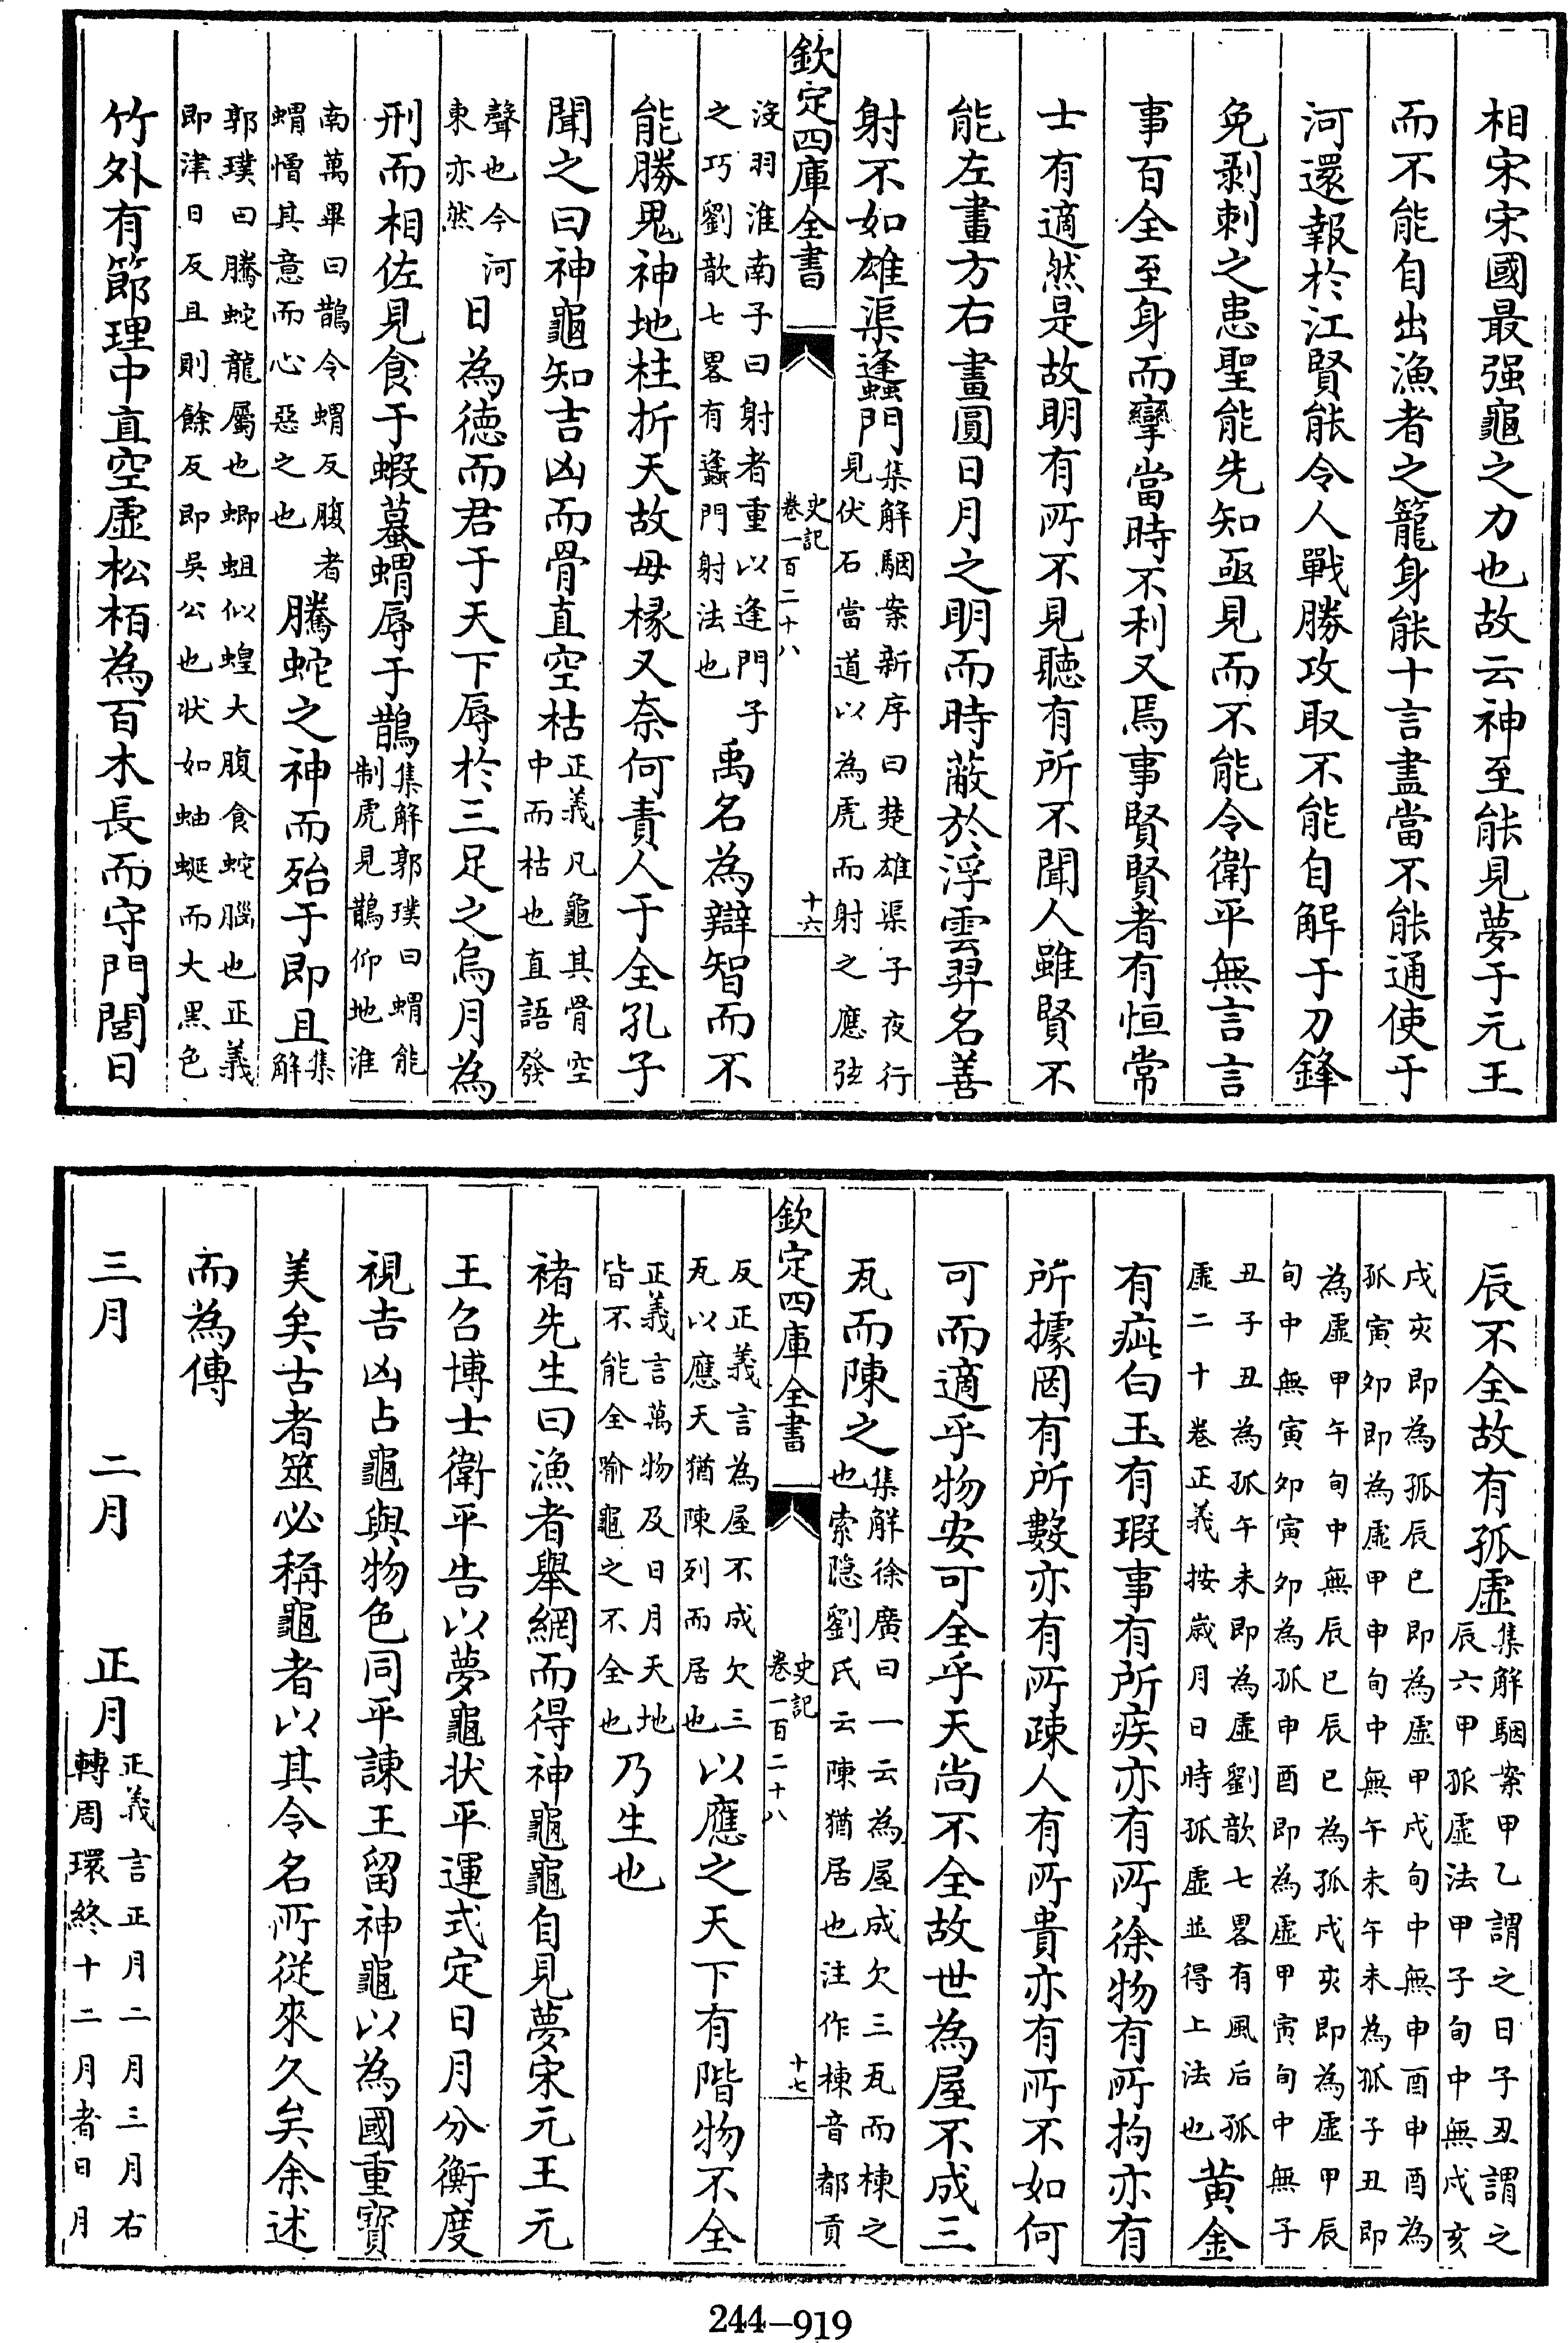 相宋宋國最强龜之力也故云神至能見夢于元王
而不能自出漁者之籠身能十言盡當不能通使于
河還報於江賢能令人戰勝攻取不能自解于刀鋒
免剥刺之患聖能先知亟見而不能令衛平無言言
事百全至身而攣當時不利又焉事賢賢者有恒常
士有適然是故明有所不見聽有所不聞人雖賢不
能左畫方右畫圓日月之明而時蔽於浮雲羿名善
射不如雄渠蠭門集解駰案新序曰楚雄渠子夜行
見伏石當道以為虎而射之應弦
欽定四庫全書 史記卷一百二十八 十六
没羽淮南子曰射者重以逢門子
之巧劉歆七畧有蠭門射法也
禹名為辯智而不
能勝鬼神地柱折天故毋椽又奈何責人于全孔子
聞之曰神龜知吉凶而骨直空枯正義凡龜其骨空
中而枯也直語發
聲也今河
東亦然
日為徳而君于天下辱於三足之烏月為
刑而相佐見食于蝦蟇蝟辱于鵲集解郭璞曰蝟能
制虎見鵲仰地淮
南萬畢曰鵲令蝟反腹者
蝟憎其意而心惡之也
騰蛇之神而殆于即且集
解
郭璞曰騰蛇龍屬也蝍蛆似蝗大腹食蛇腦也正義
即津日反且則餘反即吳公也状如蚰蜒而大黑色
竹外有節理中直空虛松栢為百木長而守門閭日
辰不全故有孤虛集解駰案甲乙謂之日子丑謂之
辰六甲孤虛法甲子旬中無戍亥
戍亥即為孤辰巳即為虛甲戍旬中無申酉申酉為
孤寅夘即為虛甲申旬中無午未午未為孤子丑即
為虛甲午旬中無辰巳辰巳為孤戍亥即為虛甲辰
旬中無寅夘寅夘為孤申酉即為虛甲寅旬中無子
丑子丑為孤午未即為虛劉歆七畧有風后孤
虛二十卷正義按嵗月日時孤虛並得上法也
黄金
有疵白玉有瑕事有所疾亦有所徐物有所拘亦有
所據罔有所數亦有所疎人有所貴亦有所不如何
可而適乎物安可全乎天尚不全故世為屋不成三
瓦而陳之集解徐廣曰一云為屋成欠三瓦而棟之
也索隠劉氏云陳猶居也注作棟音都貢
欽定四庫全書 史記卷一百二十八 十七
反正義言為屋不成欠三
瓦以應天猶陳列而居也
以應之天下有階物不全
正義言萬物及日月天地
皆不能全喻龜之不全也
乃生也
褚先生曰漁者舉網而得神龜龜自見夢宋元王元
王召博士衛平告以夢龜状平運式定日月分衡度
視吉凶占龜與物色同平諫王留神龜以為國重寳
美矣古者筮必稱龜者以其令名所從來久矣余述
而為傳
三月 二月 正月正義言正月二月三月右
轉周環終十二月者日月
244-919